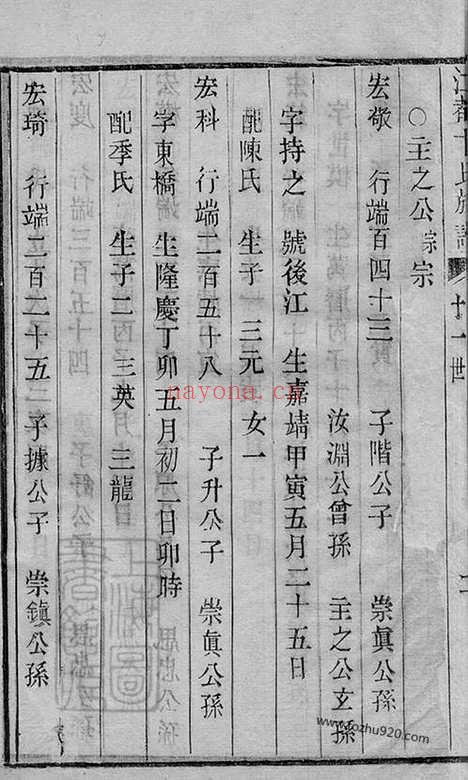 十一世
○主之公宗
宏敬 行端百四十三 子階公子 崇眞公孫
汝淵公曾孫 主之公玄孫
字持之 號後江 生嘉靖甲寅五月二十五日
配陳氏 生子一 三元 女一
宏科 行端二百五十八 子升公子 崇眞公孫
字東橋 生隆慶丁卯五月初二日卯時
配季氏 生子二 三英 三龍
宏琦 行端二百二十五 子據公子 崇鎮公孫
nayona.cn
www.fozhu920.com